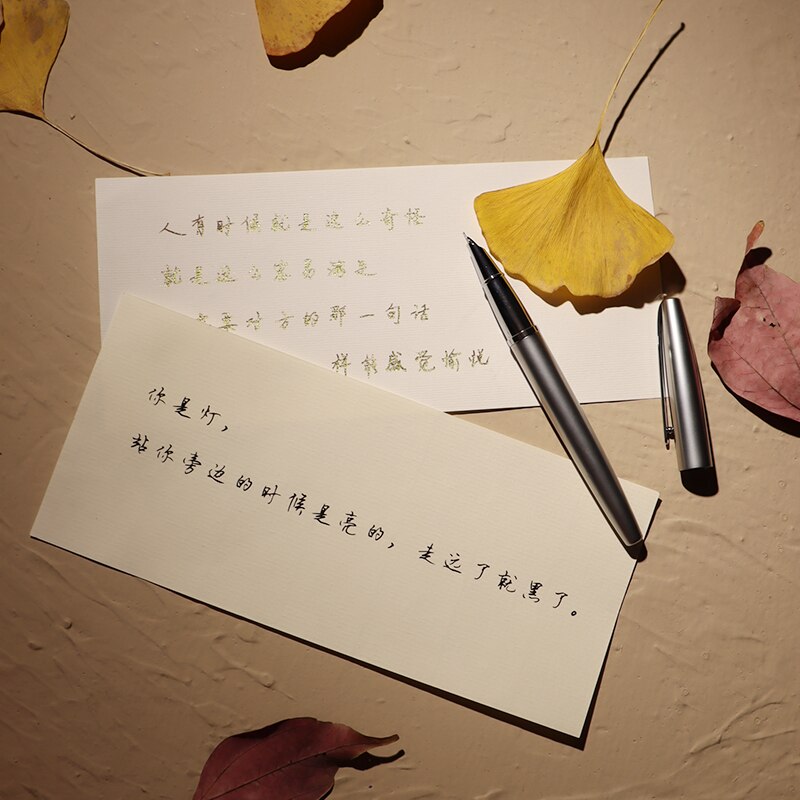 人有时候就是这么奇怪
就是这么容易满足
要对方的那一句话
样能感觉愉悦
你是灯，
站你旁边的时候是亮的，走远了就黑了。